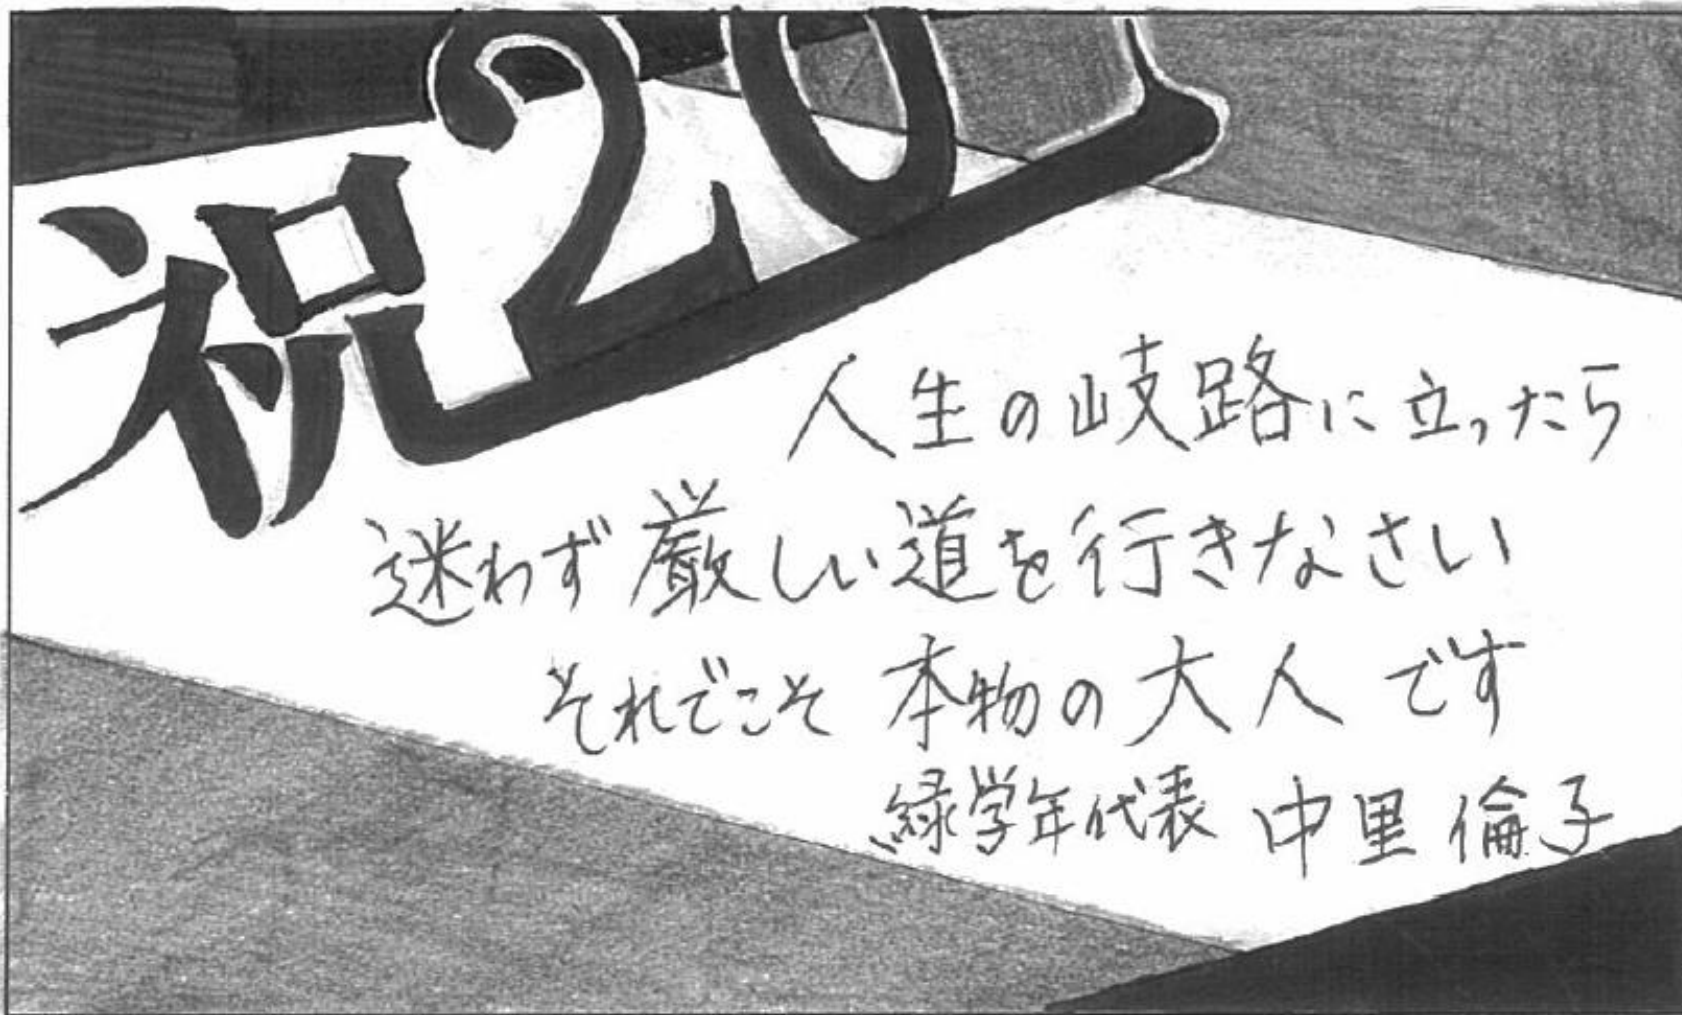 祝20
人生の岐路に立ったら
迷わず厳しい道を行きなさい
それでこそ 本物の大人です
緑学年代表 中里 倫子